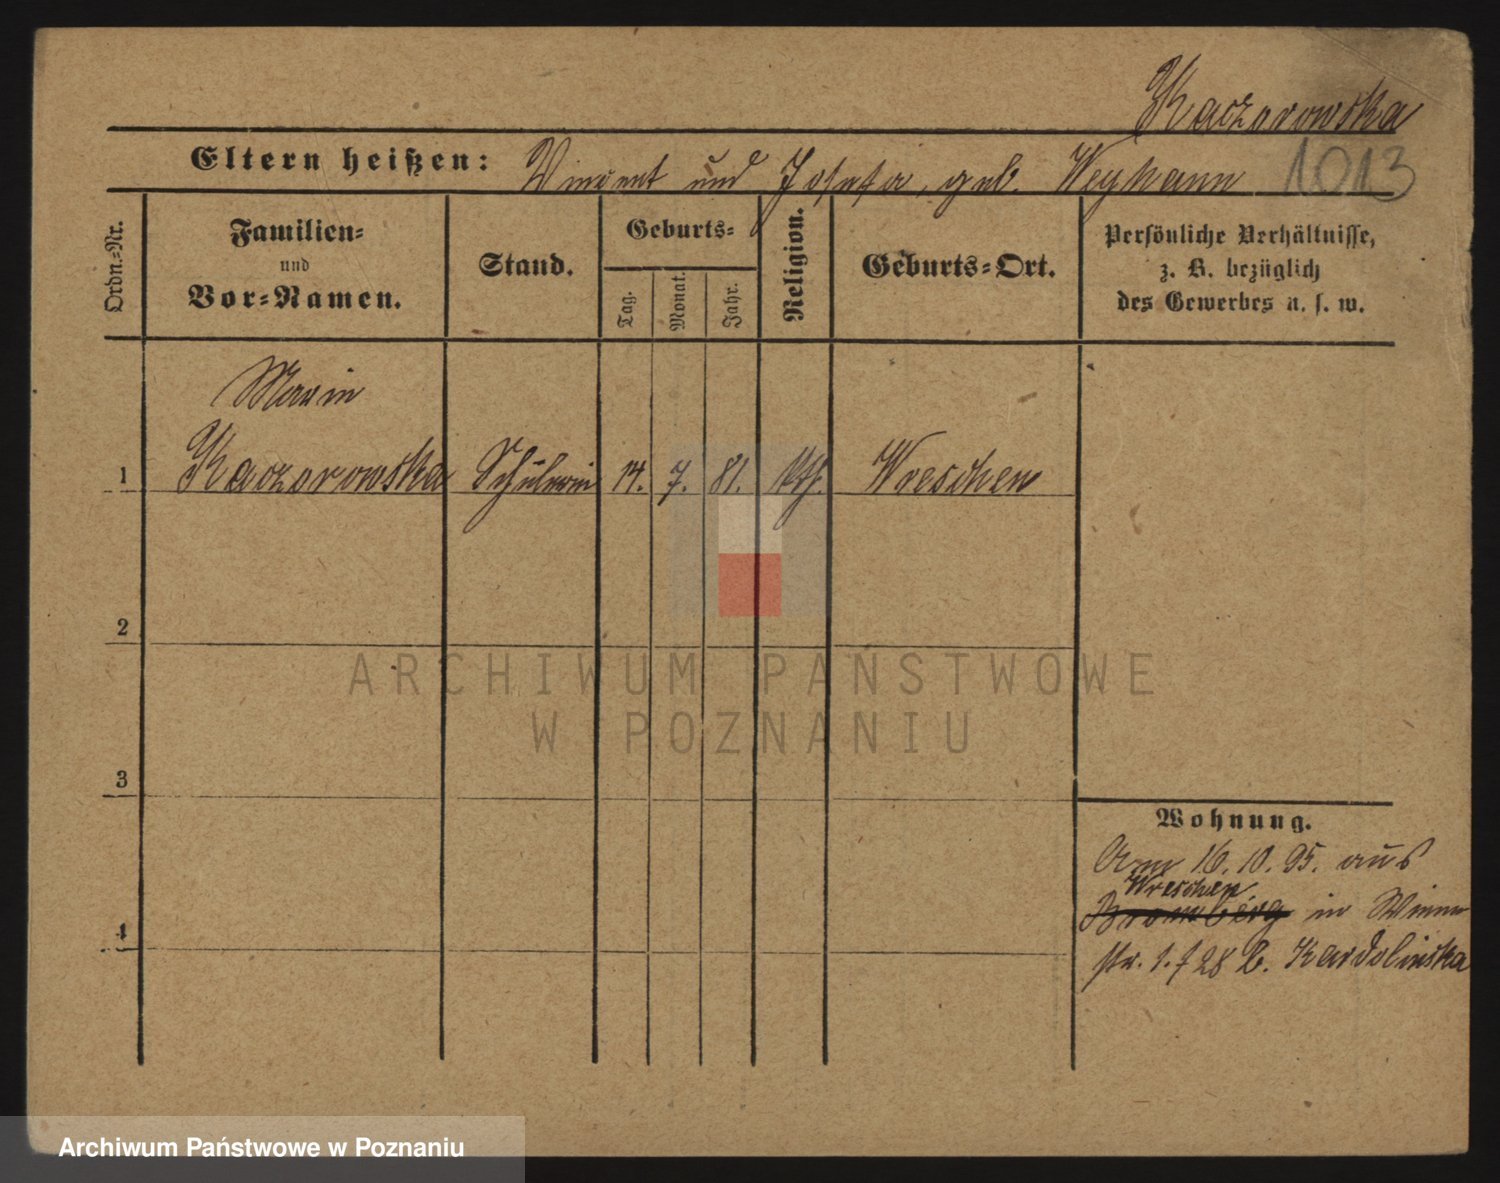 Kaczorowska
Eltern heißen: Vincent und Josefa, geb. Weymann 1013
Ordn.-Nr.
Familien- und Vor-Namen.
Stand.
Geburts-
Tag.
Monat.
Jahr.
Religion.
Geburts-Ort.
Persönliche Verhältnisse,
z. B. bezüglich
des Gewerbes u. s. w.
Marie
1 Kaczorowska Schülerin 14. 7. 81. kth. Wreschen
2
3
4
Wohnung.
Am 16.10.95. aus
Wreschen
Bromberg in Wiener
str. 1. 28 b. Kardolinska
ARCHIWUM PAŃSTWOWE
W POZNANIU
Archiwum Państwowe w Poznaniu